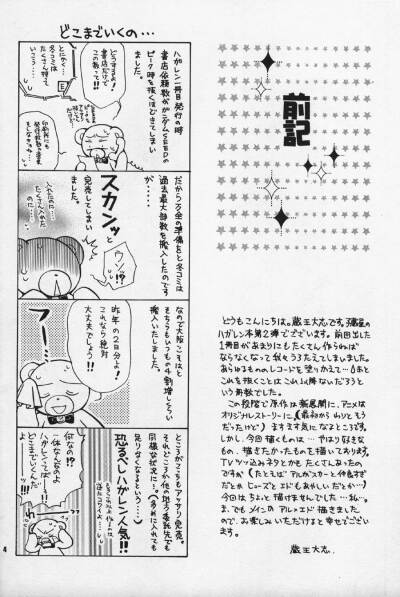 どこまでいくの…
ハガレン1冊目発行の時
書店依頼数がガンダムSEEDの
ピーク時を抜くほどきてしまい
ました。
どうするよ!
書店だけで
この数って!!
とにかく…
冬コミは
たくさん持って
いこう……
だから万全の準備をと冬コミは
過去最大部数を搬入したのです
が……
スカンッと
完売してしまい
ウソ!?
入れたのに…
たくさん入れた
のに…
なので大阪ではと
そちらもいつもの4割増しくらい
搬入いたしました。
昨年の2日分よ!
これなら絶対
大丈夫でしょう!!
フー…
ところがこちらもアッサリ完売。
それどころか他の地方委託先でも
同様な状況に…。(多めに入れても
足りなくなるという…)
恐るべしハガレン人気!!
何なの!?
一体なんなのよ
ハガレンって—!!
どこまでいくんだ
前記
どうもこんにちは。蔵王大志です。
ハガレン本第2弾でございます。前回出した
1冊目があまりにもたくさん作らねば
ならなくなって我々うろたえてしまいました。
あらゆるもののレコードを塗りかえて…6年と
これを抜くことはこれ以降ないだろうと
いう部数でした。
この段階で原作は新展開に、アニメは
オリジナルストーリーに(最初からわりとそう
だったけど)ますます気になるところです。
しかし、今回描くものは…やはり好きな
もの、描きたかったものを描いております。
TVツッ込みネタとかもたくさんあったの
ですが(たとえばアルがスカーと仲良すぎ
だとかヒューズとエドもあやしいだとか…)
今回はちょっと描けませんでした…私…。
ま、でもメインのアル×エド描きました
ので、お楽しみいただけますと幸せでござい
ます。
蔵王大志.
4